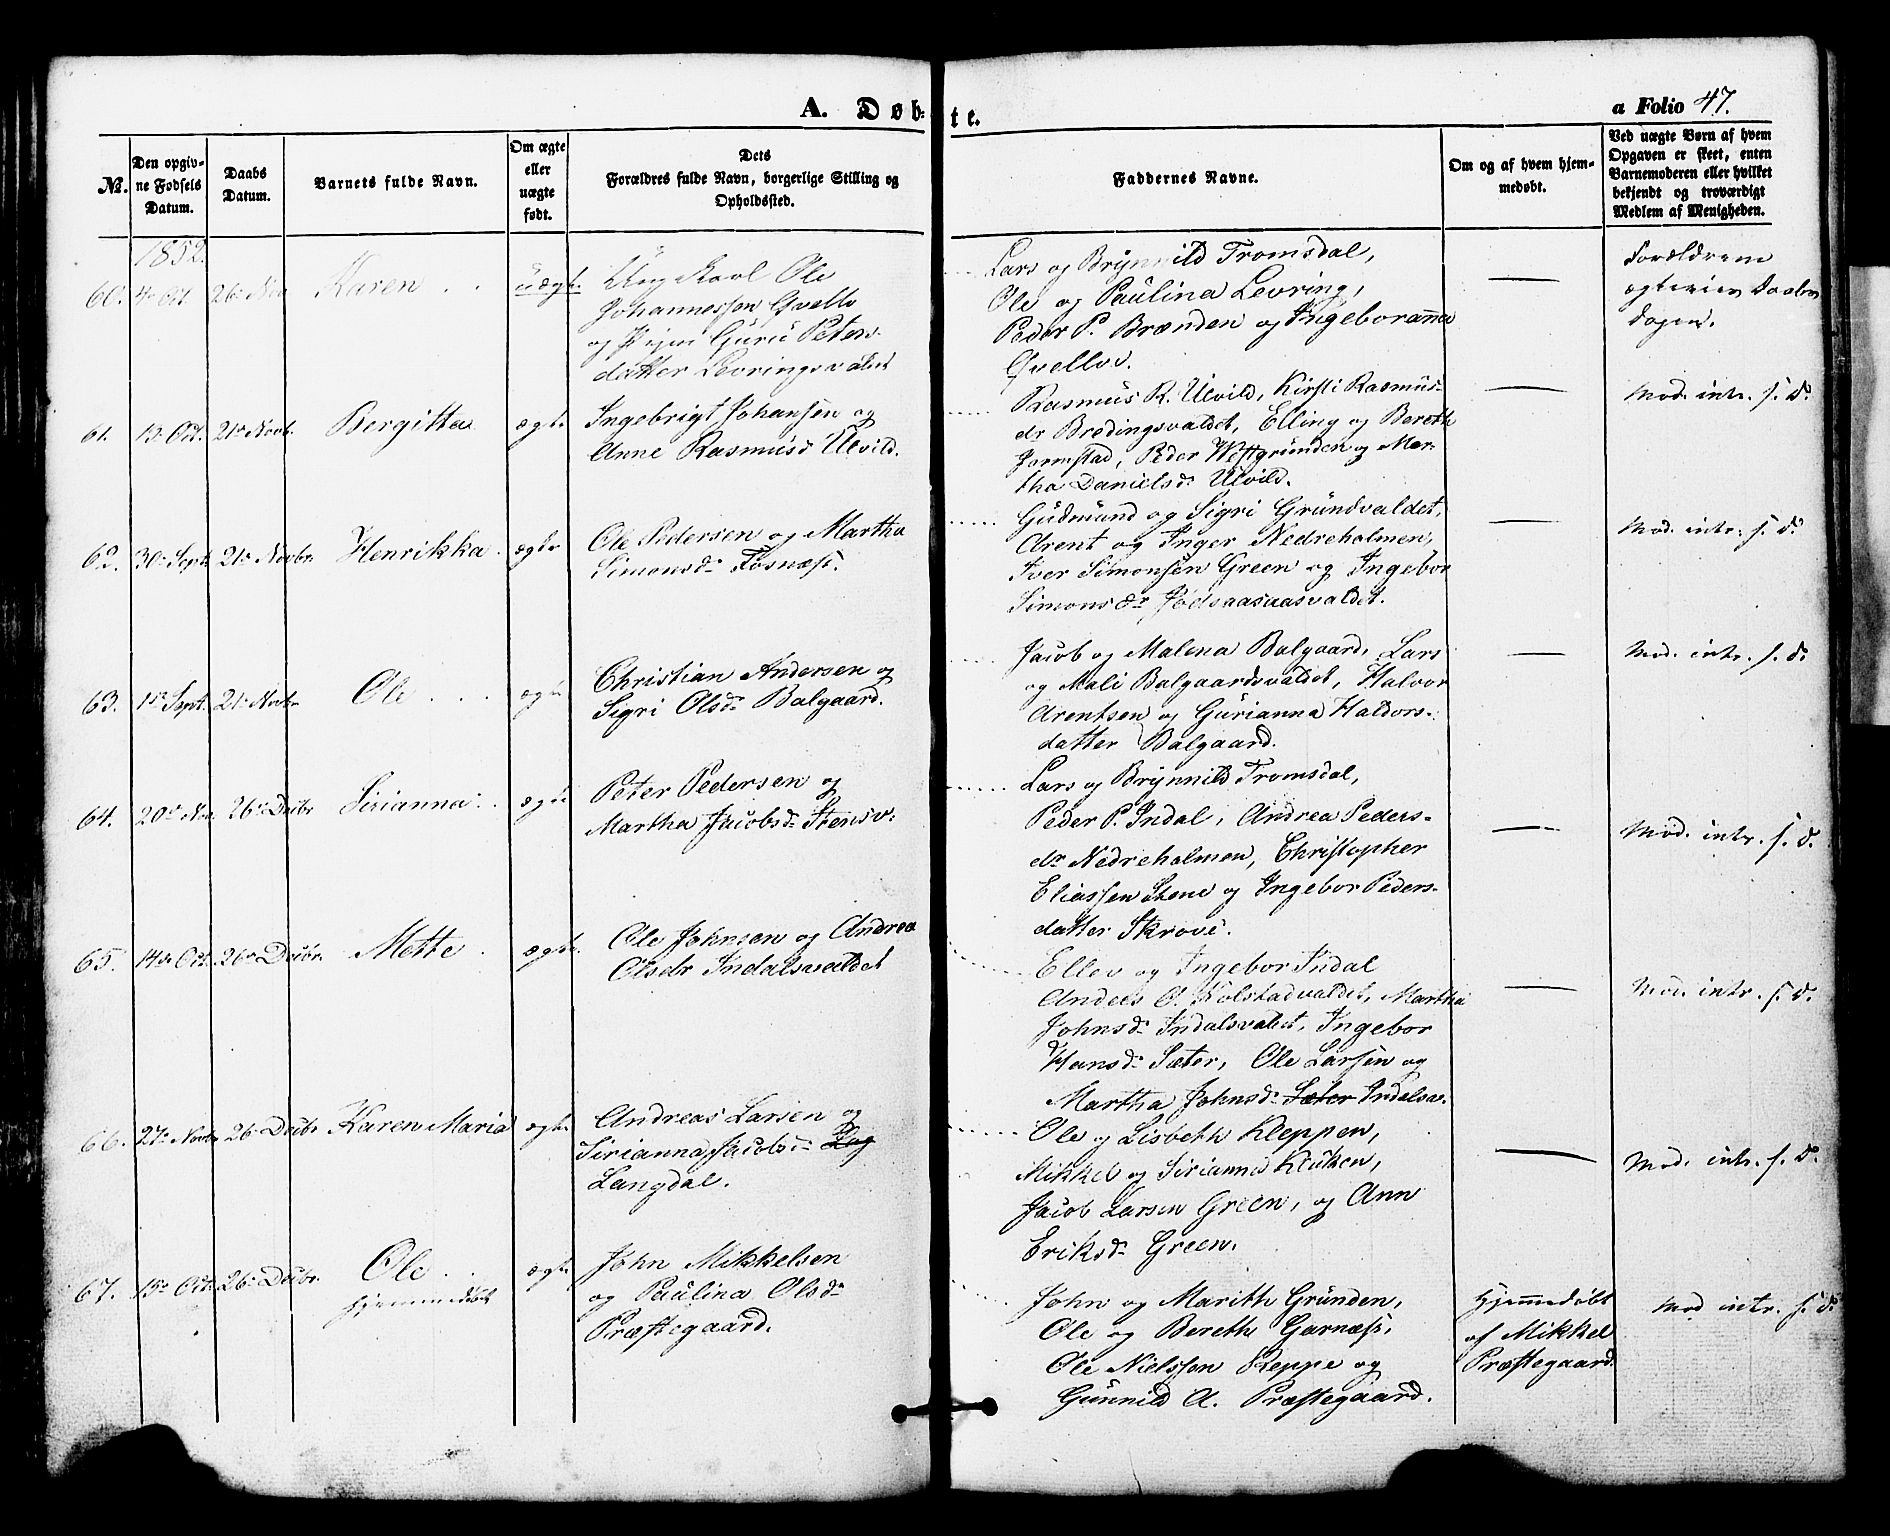 A. Døb-te.
a Folio 47.
No.
Den opgiv-
ne Fødsels
Datum.
Daabs
Datum.
Barnets fulde Navn.
Om ægte
eller
uægte
født.
Dets
Forældres fulde Navn, borgerlige Stilling og
Opholdssted.
Faddernes Navne.
Om og af hvem hjem-
medøbt.
Ved uægte Børn af hvem
Opgaven er skeet, enten
Barnemoderen eller hvilket
bekjendt og troværdigt
Medlem af Menigheden.
1852.
60. 4de Oct. 26de Nov Karen uægt.
Ungkarl Ole
Johannessen Qvello
og Pigen Guru Peters
datter Levringsvaldet
Lars og Brynnild Tromsdal,
Ole og Paulina Levring,
Peder P. Brænden og Ingeboranna
Qvello.
Forældrene
Dagen.
61. 13de Oct. 21de Novb. Bergitta ægte
Ingebrigt Johansen og
Anne Rasmusdr Ulvild.
Rasmus R. Ulvild, Kirsti Rasmus-
dr Bredingsvaldet, Elling og Bereth
Jermstad, Peder Westgrunden og Mar-
tha Danielsdr Ulvild.
Mod. intr. s. D.
62. 30te Sept. 21de Novbr Henrikka ægte
Ole Pedersen og Martha
Simonsdr Fosnæss.
Gudmund og Sigri Grundvaldet,
Arent og Inger Nedreholmen,
Iver Simonsen Green og Ingebor
Simonsdr
Mod. intr. s. D.
63. Sept. 21de Novbr Ole ægte
Christian Andersen og
Sigri Olsdr Balgaard.
Jacob og Malena Balgaard, Lars
og Mali Balgaardsvaldet, Halvor
Arentsen og Gurianna Haldors-
datter Balgaard.
Mod. intr. s. D.
64. 20de Nov. 26de Decbr Sirianna ægte
Peter Pedersen og
Martha Jacobsdr Stensv.
Lars og Brynnild Tromsdal,
Peder P. Indal, Andrea Peders-
dr Nedreholmen, Christopher
Eliassen Stene og Ingebor Peders-
datter Skrove.
Mod. intr. s. D.
65. 14de Oct. 26de Decbr. Mette ægte
Ole Johnsen og Andrea
Olsdr Indalsvaldet
Ellev og Ingebor Indal
Anders O. Kolstadvaldet, Martha
Johnsdr Indalsvaldet, Ingebor
Hansdr Sæter, Ole Larsen og
Martha Johnsdr Sæter Indalsv.
Mod. intr. s. D.
66. 27de Novbr 26de Decbr Karen Maria ægte
Andreas Larsen og
Sirianna Jacobsdr Lag
Langdal.
Ole og Lisbeth Kleppen,
Mikkel og Sirianna Kluken,
Jacob Larsen Green, og Ann
Eriksdr Green.
Mod. intr. s. D.
67. 15de Oct. 26de Decbr. Ole ægte
hjemmedøbt
John Mikkelsen
og Paulina Olsdr
Præstegaard.
John og Marith Grunden,
Ole og Berethe Garnæss,
Ole Nielssen Reppe og
Gunnild A. Præstegaard.
Hjemmedøbt
af Mikkel
Præstegaard.
Mod intr. s. D.